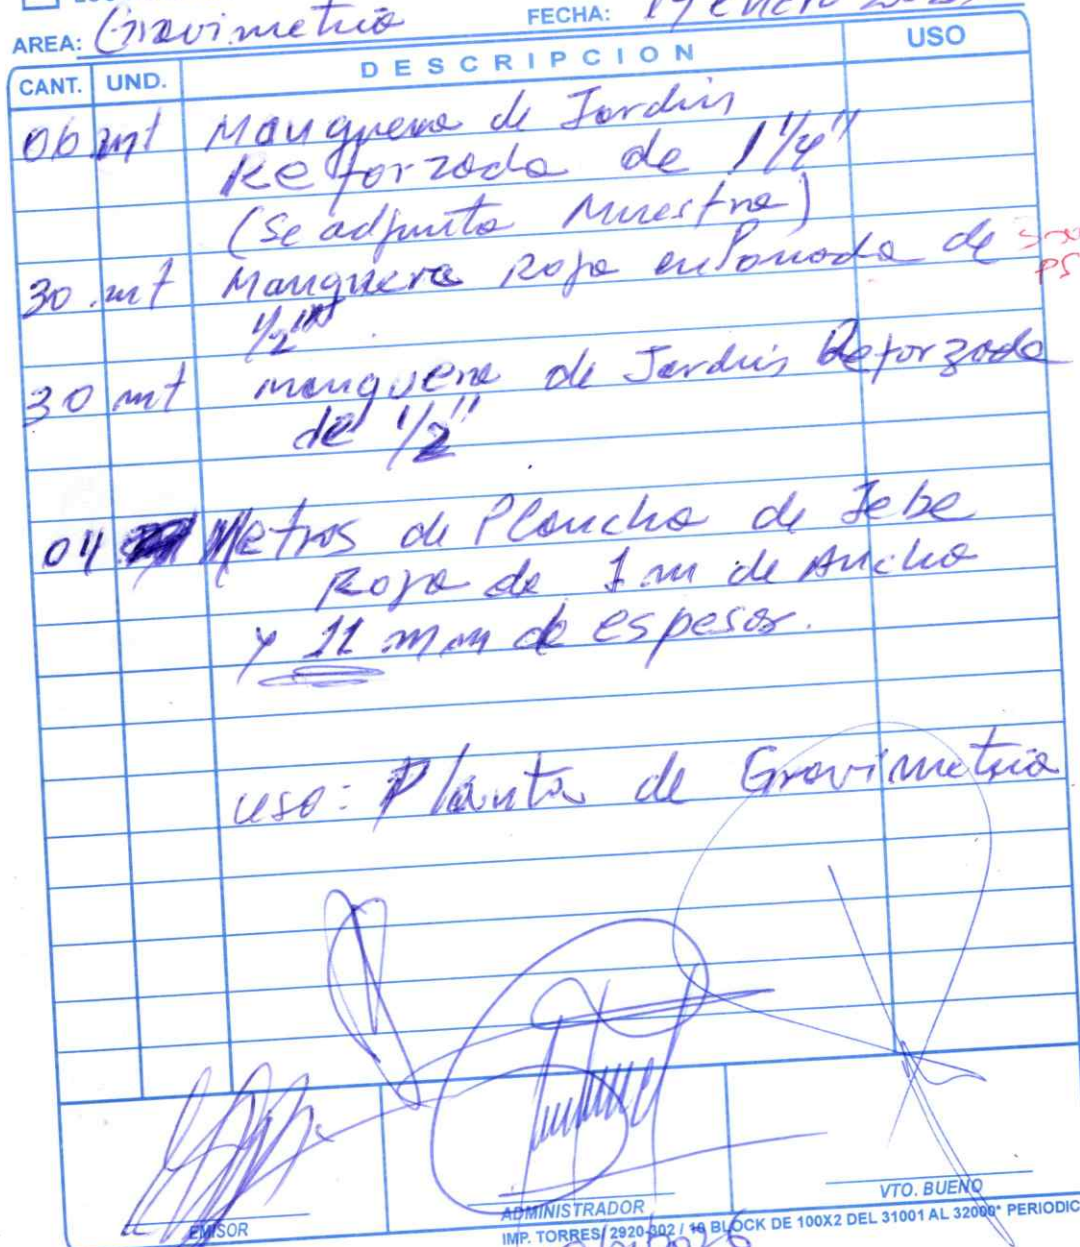 AREA: Gravimetria FECHA: 19 enero
CANT. UND. DESCRIPCION USO
06 mt Manguera de Jardin
Reforzada de 1 1/4"
(Se adjunta Muestra)
30 mt Manguera Roja enlonada de
1/2"
30 mt manguera de Jardin Reforzada
de 1/2"
04 Metros de Plancha de Jebe
Roja de 1 m de Ancho
y 11 mm de espesor.
uso: Planta de Gravimetria
EMISOR ADMINISTRADOR VTO. BUENO
IMP. TORRES/ 2920-302 / 10 BLOCK DE 100X2 DEL 31001 AL 32000* PERIODIC